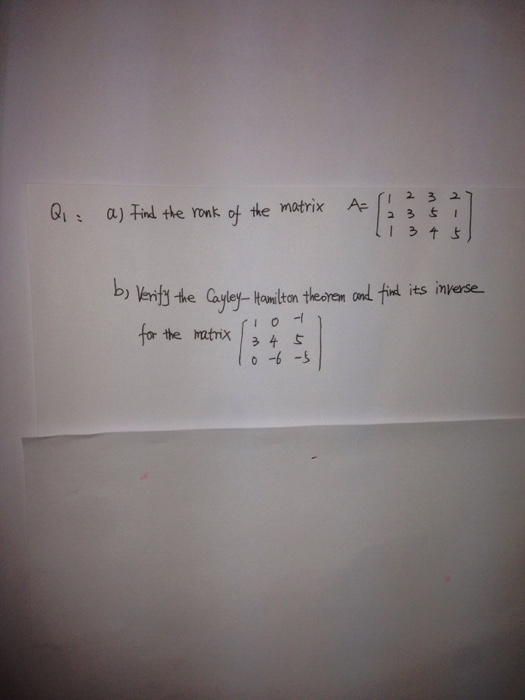 Q1: a) Find the rank of the matrix A= [1 2 3 2
2 3 5 1
1 3 4 5]
b) Verify the Cayley-Hamilton theorem and find its inverse
for the matrix [1 0 -1
3 4 5
0 -6 -5]